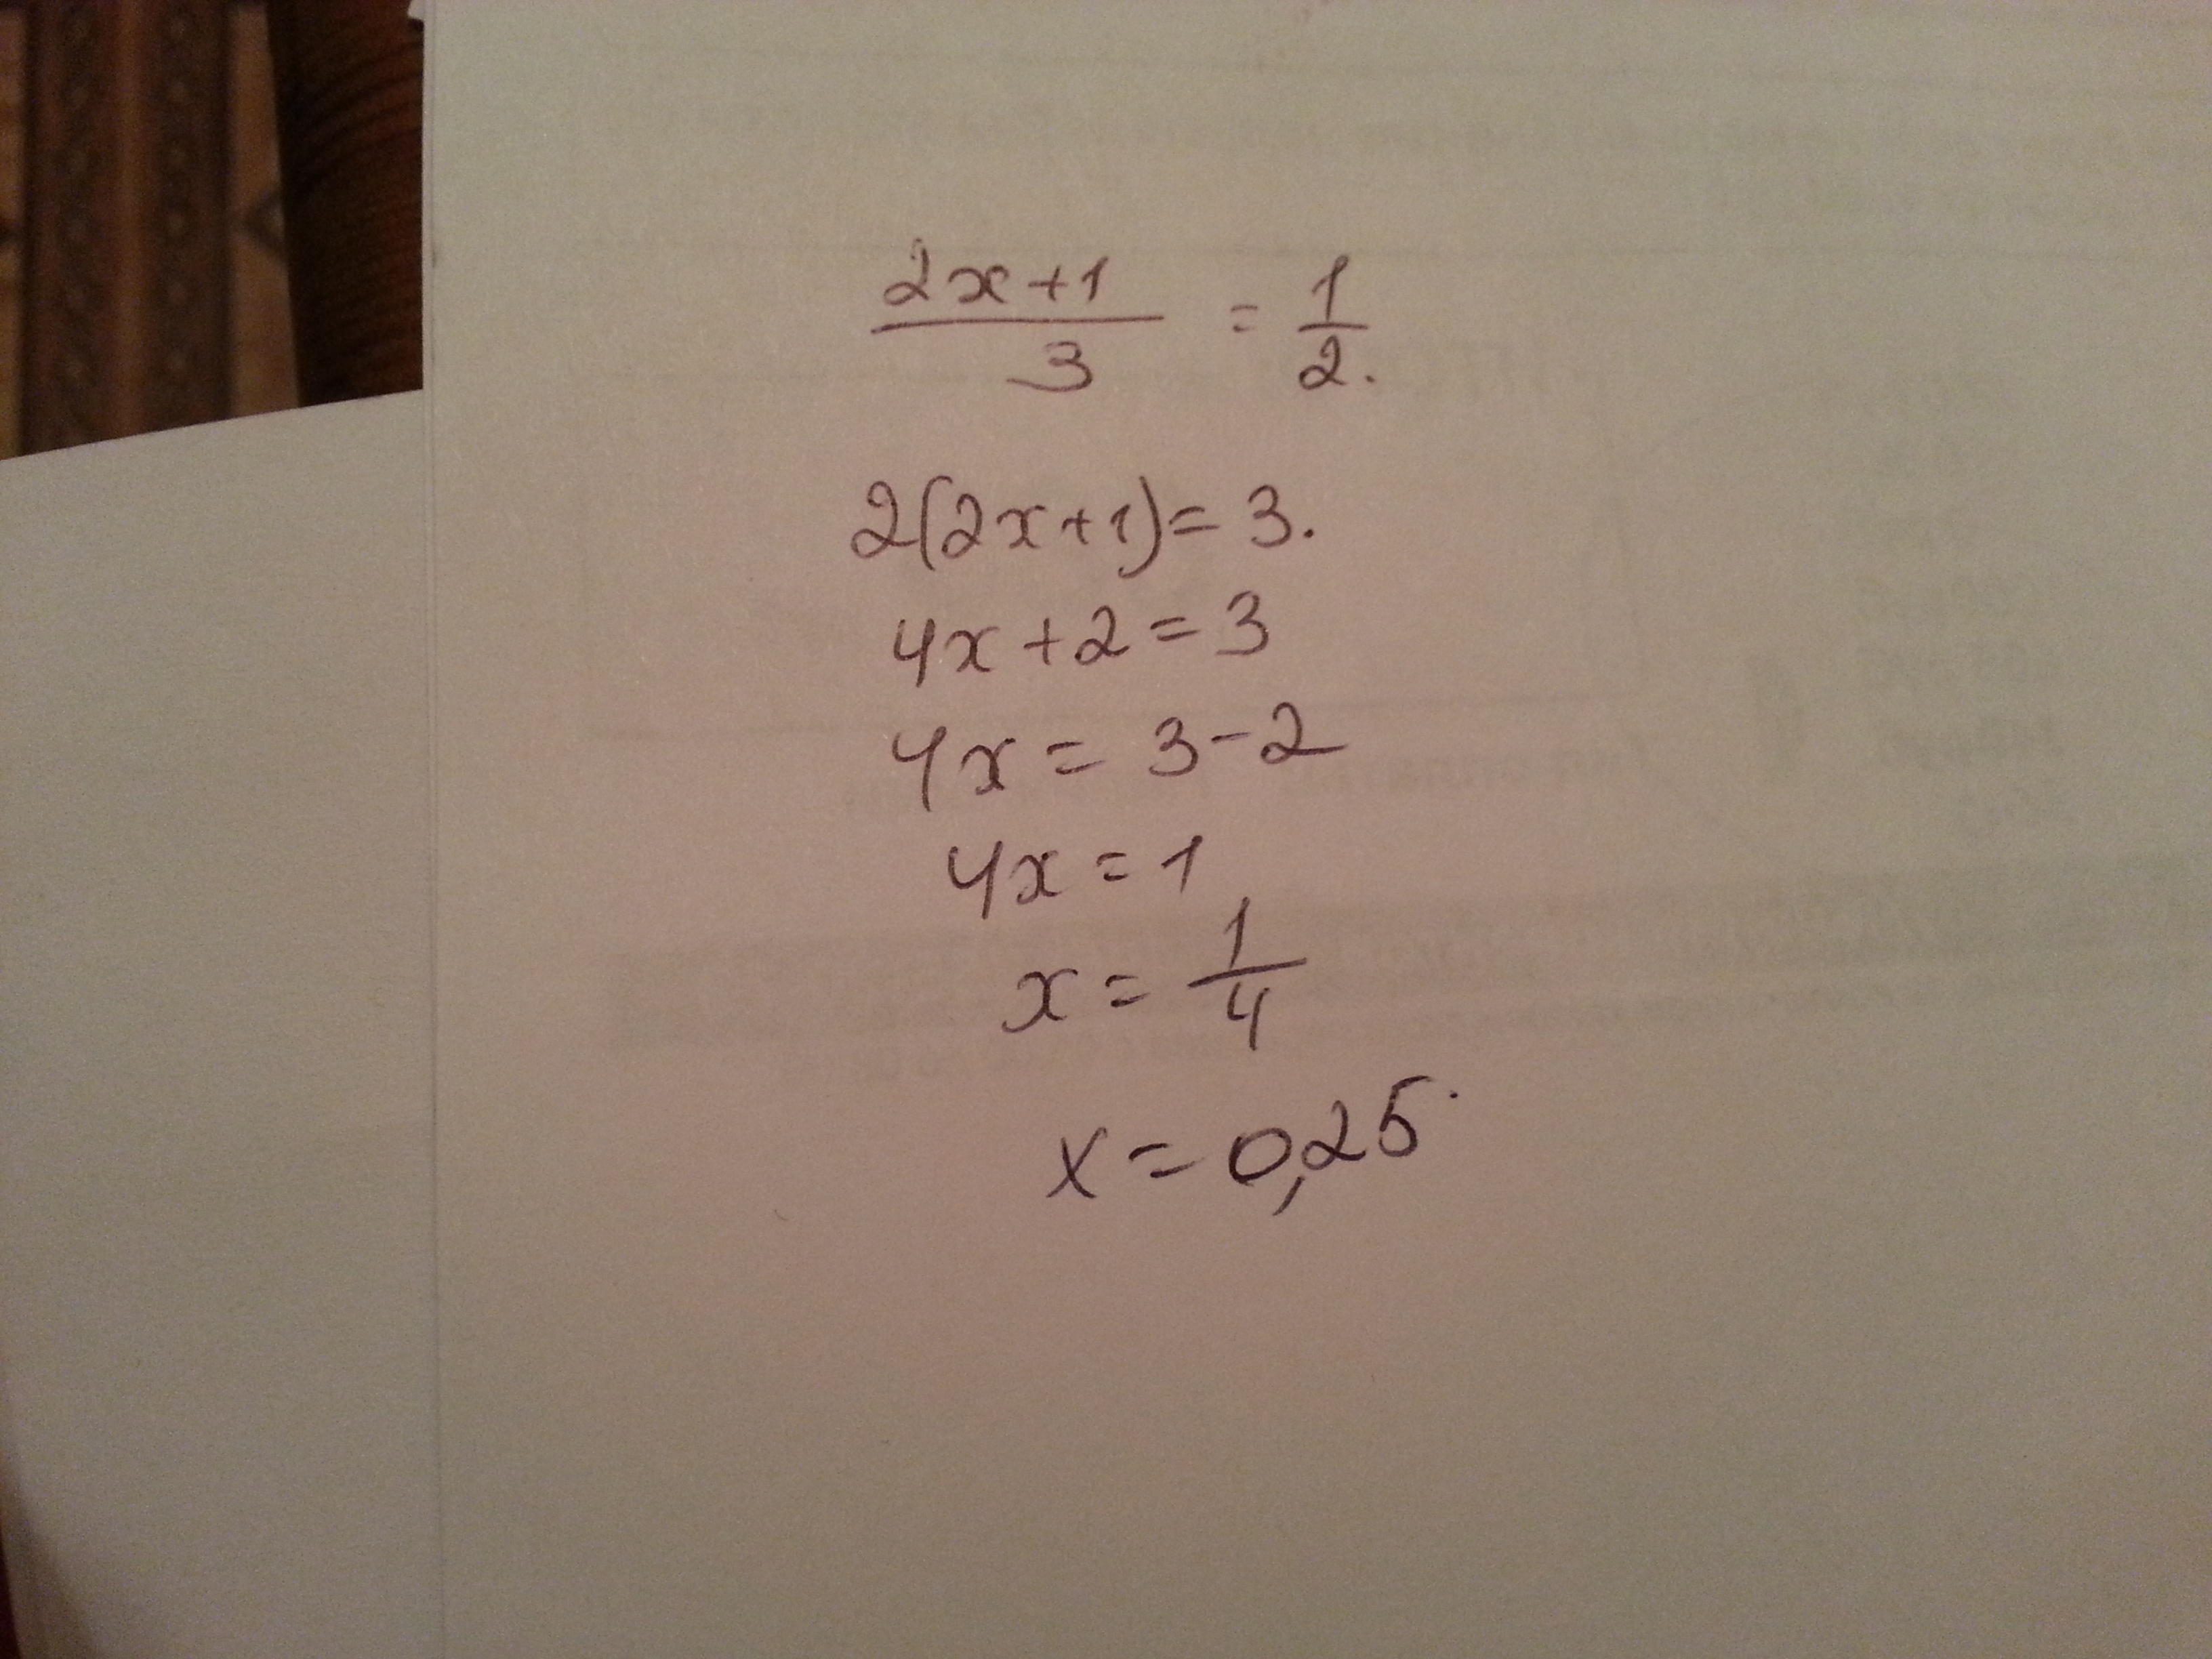 (2x+1)/3 = 1/2.
2(2x+1)=3.
4x+2=3
4x=3-2
4x=1
x=1/4
x=0,25.